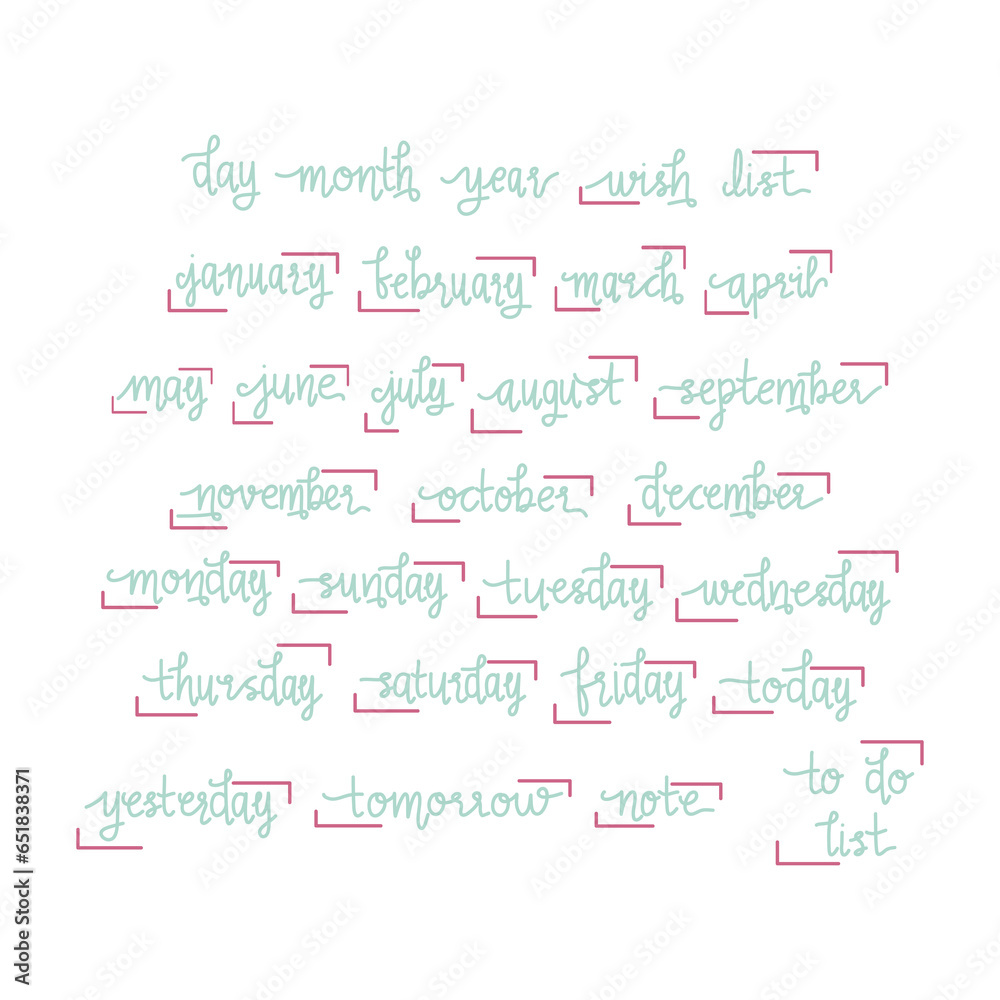 day month year wish list
january february march april
may june july august september
november october december
monday sunday tuesday wednesday
thursday saturday friday today
yesterday tomorrow note to do
list
Adobe Stock | #651838371